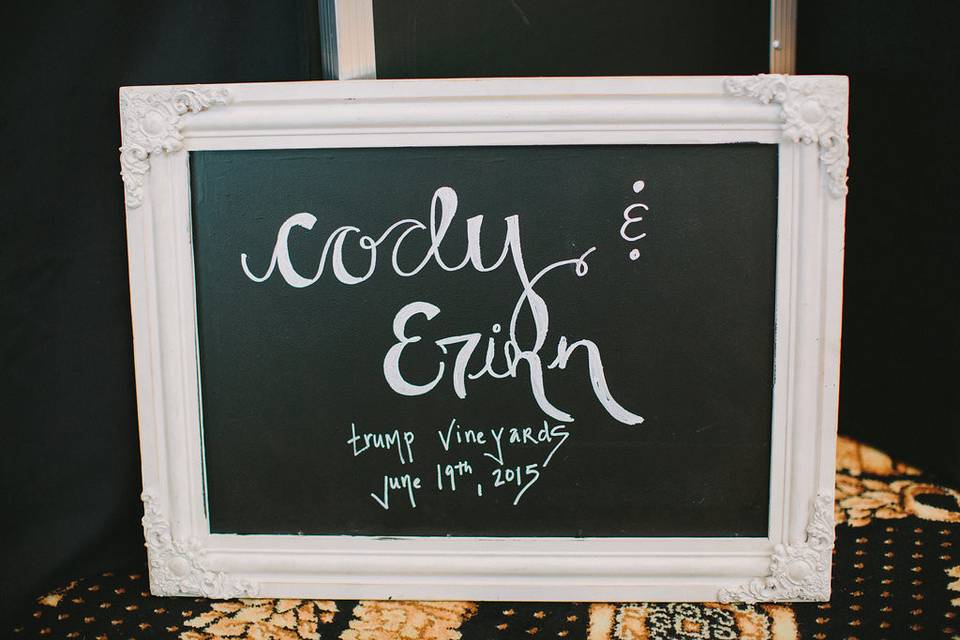 cody &
Erinn
trump vineyards
june 19th, 2015